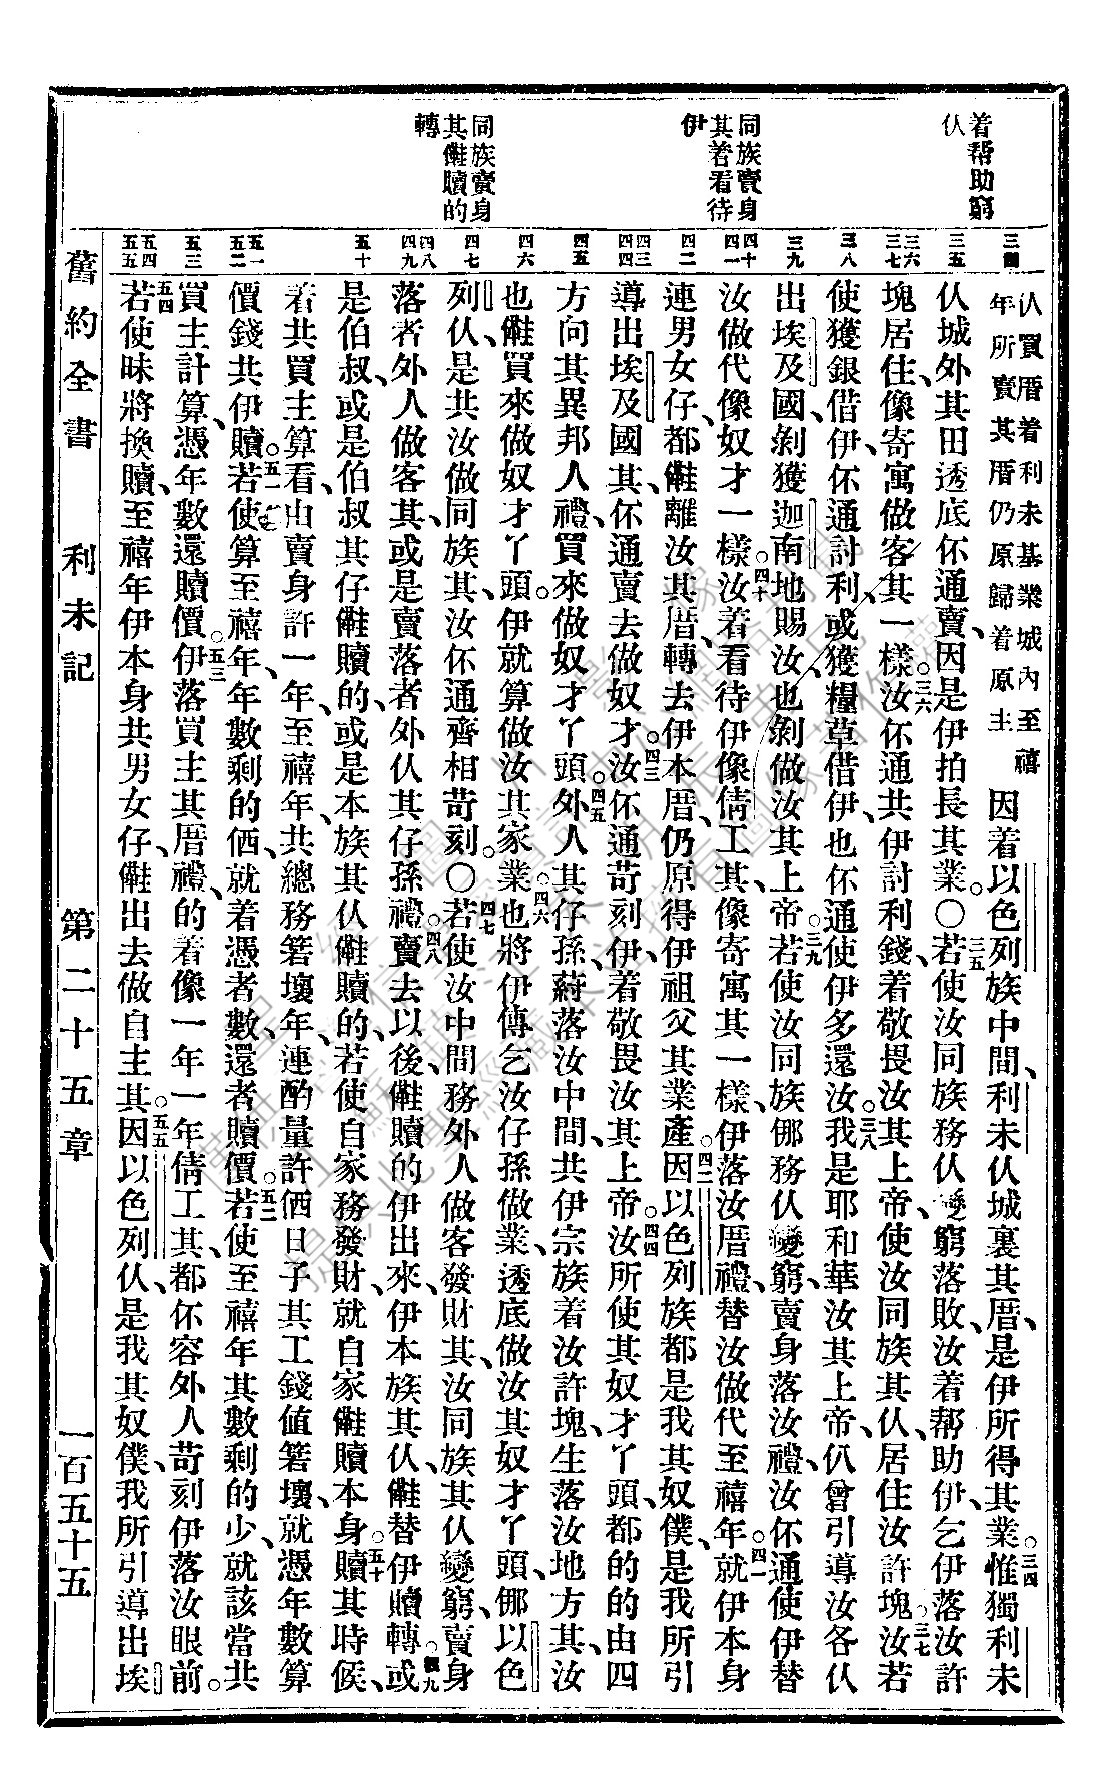 着幇助窮
仈
同族賣身
其着看待
伊
同族賣身
其㑚贖的
轉
三四
三五
三六 三七
三八
三九
四十 四一
四二
四三 四四
四五
四六
四七
四八 四九
五十
五一 五二
五三
五四 五五
仈買厝着利未基業城內至禧
年所賣其厝仍原歸着原主
因着以色列族中間、利未仈城裏其厝、是伊所得其業。三四惟獨利未
仈城外其田透底伓通賣、因是伊拍長其業。〇三五若使汝同族務仈變窮落敗、汝着幇助伊、乞伊落汝許
塊居住、像寄寓做客其一樣。三六汝伓通共伊討利錢、着敬畏汝其上帝、使汝同族其仈、居住汝許塊。三七汝若
使獲銀借伊、伓通討利、或獲糧草借伊、也伓通使伊多還汝。三八我是耶和華汝其上帝、仈曾引導汝各仈
出埃及國、剝獲迦南地賜汝、也剝做汝其上帝。三九若使汝同族㑚務仈變窮、賣身落汝禮、汝伓通使伊替
汝做代像奴才一樣。四十汝着看待伊像倩工其、像寄寓其一樣、伊落汝厝禮、替汝做代至禧年。四一就伊本身
連男女仔、都㑚離汝其厝、轉去伊本厝、仍原得伊祖父其業產。四二因以色列族都是我其奴僕、是我所引
導出埃及國其、伓通賣去做奴才。四三汝伓通苛刻伊、着敬畏汝其上帝。四四汝所使其奴才丫頭、都的的由四
方向其異邦人禮、買來做奴才丫頭。四五外人其仔孫、葑落汝中間、共伊宗族着汝許塊、生落汝地方其、汝
也㑚買來做奴才丫頭。伊就算做汝其家業。四六也將伊傳乞汝仔孫做業、透底做汝其奴才丫頭、㑚以色
列仈、是共汝做同族其、汝伓通齊相苛刻。〇四七若使汝中間務外人做客發財其、汝同族其仈變窮、賣身
落者外人做客其、或是賣落者外仈其仔孫禮。四八賣去以後、㑚贖的、伊出來、伊本族其仈、㑚替伊贖轉。四九或
是伯叔、或是伯叔其仔㑚贖的、或是本族其仈㑚贖的、若使自家務發財、就自家㑚贖本身。五十贖其時候、
着共買主算看、由賣身許一年、至禧年、共總務箬壞年、連酌量許㑚日子其工錢值箬壞、就憑年數算
價錢共伊贖。五一若使算至禧年、年數剩的㑚、就着憑者數、還者贖價。五二若使至禧年其數剩的少、就該當共
買主計算、憑年數還贖價。五三伊落買主其厝禮、的着像一年一年倩工其、都伓容外人苛刻伊落汝眼前。
五四若使昧將換贖、至禧年伊本身共男女仔、㑚出去做自主其。五五因以色列仈、是我其奴僕、我所引導出埃
舊約全書 利未記 第二十五章 一百五十五